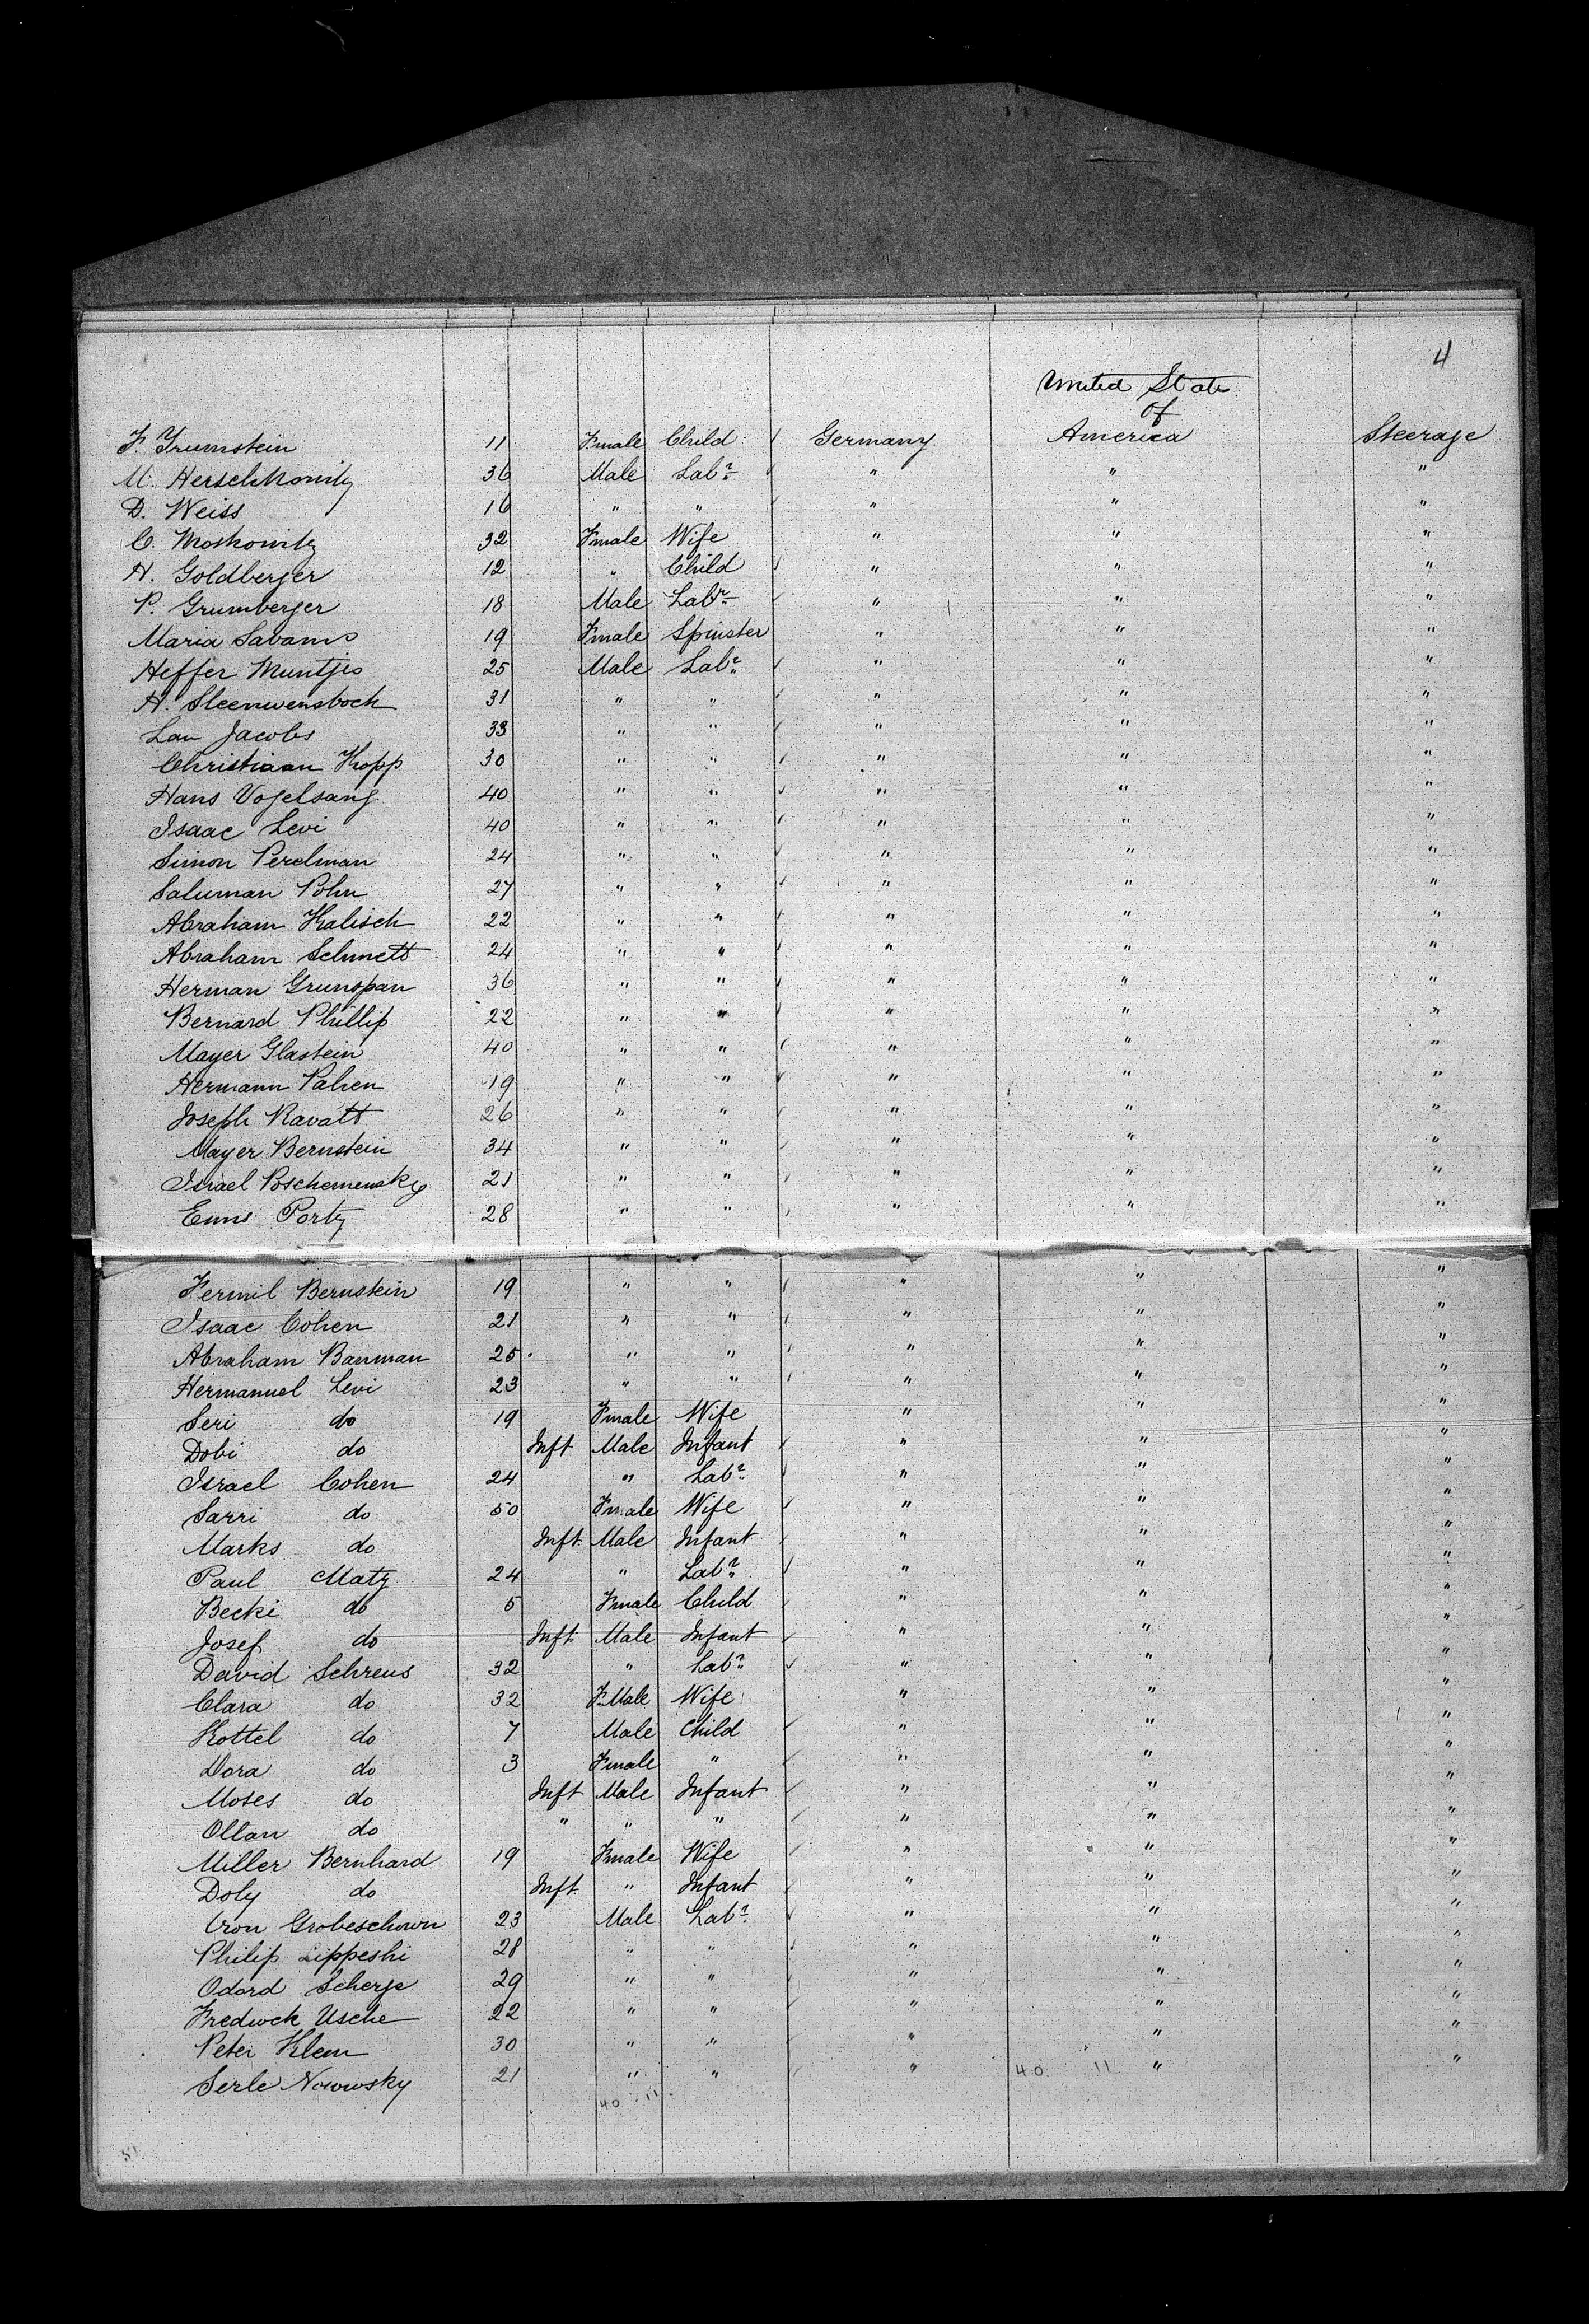 4
United State
of
F. Grumstein 11 Fmale Child Germany America Steerage
M. Herschkowitz 36 Male Labr " " "
D. Weiss 16 " " " " "
C. Moskowitz 32 Fmale Wife " " "
H. Goldberger 12 " Child " " "
P. Grumberger 18 Male Labr " " "
Maria 19 Fmale Spinster " " "
Heffer Muntjes 25 Male Labr " " "
H. 31 " " " " "
Lau Jacobs 33 " " " " "
Christiaan Kopp 30 " " " " "
Hans Vogelsang 40 " " " " "
Isaac Levi 40 " " " " "
Simon Perelman 24 " " " " "
Saluman Pohn 27 " " " " "
Abraham Kalisch 22 " " " " "
Abraham Schmett 24 " " " " "
Herman Grunspan 36 " " " " "
Bernard Phillip 22 " " " " "
Mayer Glastein 40 " " " " "
Hermann Palien 19 " " " " "
Joseph Ravatt 26 " " " " "
Mayer Bernstein 34 " " " " "
Israel Poschemensky 21 " " " " "
Enns Porty 28 " " " " "
Fermil Bernstein 19 " " " " "
Isaac Cohen 21 " " " " "
Abraham Banman 25 " " " " "
Hermanuel Levi 23 " " " " "
Seri do 19 Fmale Wife " " "
Dobi do Inft Male Infant " " "
Israel Cohen 24 " Labr " " "
Sarri do 50 Fmale Wife " " "
Marks do Inft. Male Infant " " "
Paul Matz 24 " Labr " " "
Becki do 5 Fmale Child " " "
Josef do Inft. Male Infant " " "
David Schreus 32 " Labr " " "
Clara do 32 F.Male Wife " " "
Kottel do 7 Male Child " " "
Dora do 3 Fmale " " " "
Moses do Inft Male Infant " " "
Ollan do " " " " " "
Miller Bernhard 19 Fmale Wife " " "
Doly do Inft. " Infant " " "
Grobeschown 23 Male Labr " " "
Philip Lippeshi 28 " " " " "
Odord Scherge 29 " " " " "
Fredrick Usche 22 " " " " "
Peter Klem 30 " " " " "
Serle Nowowsky 21 " " " 40 11 " "
40 11
51